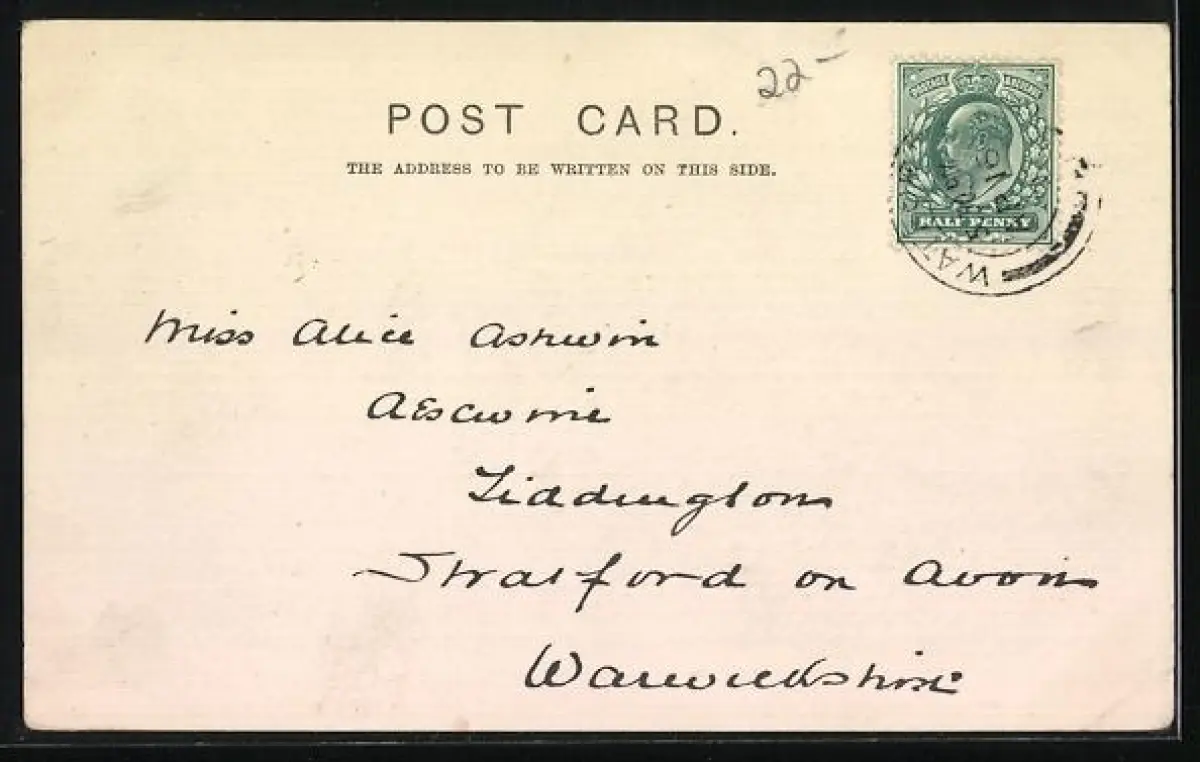 22-
POST CARD.
THE ADDRESS TO BE WRITTEN ON THIS SIDE.
POSTAGE REVENUE
HALF PENNY
WAT
Miss Alice Ashwin
Aescwine
Tiddington
Stratford on Avon
Warwickshire